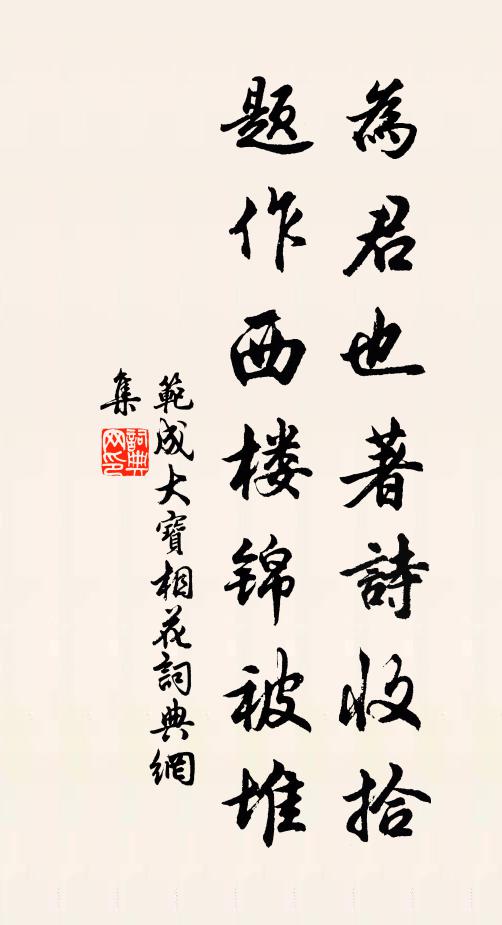 為君也著詩收拾
题作西楼锦被堆
範成大寶相花詞典網
集
詞典
网印